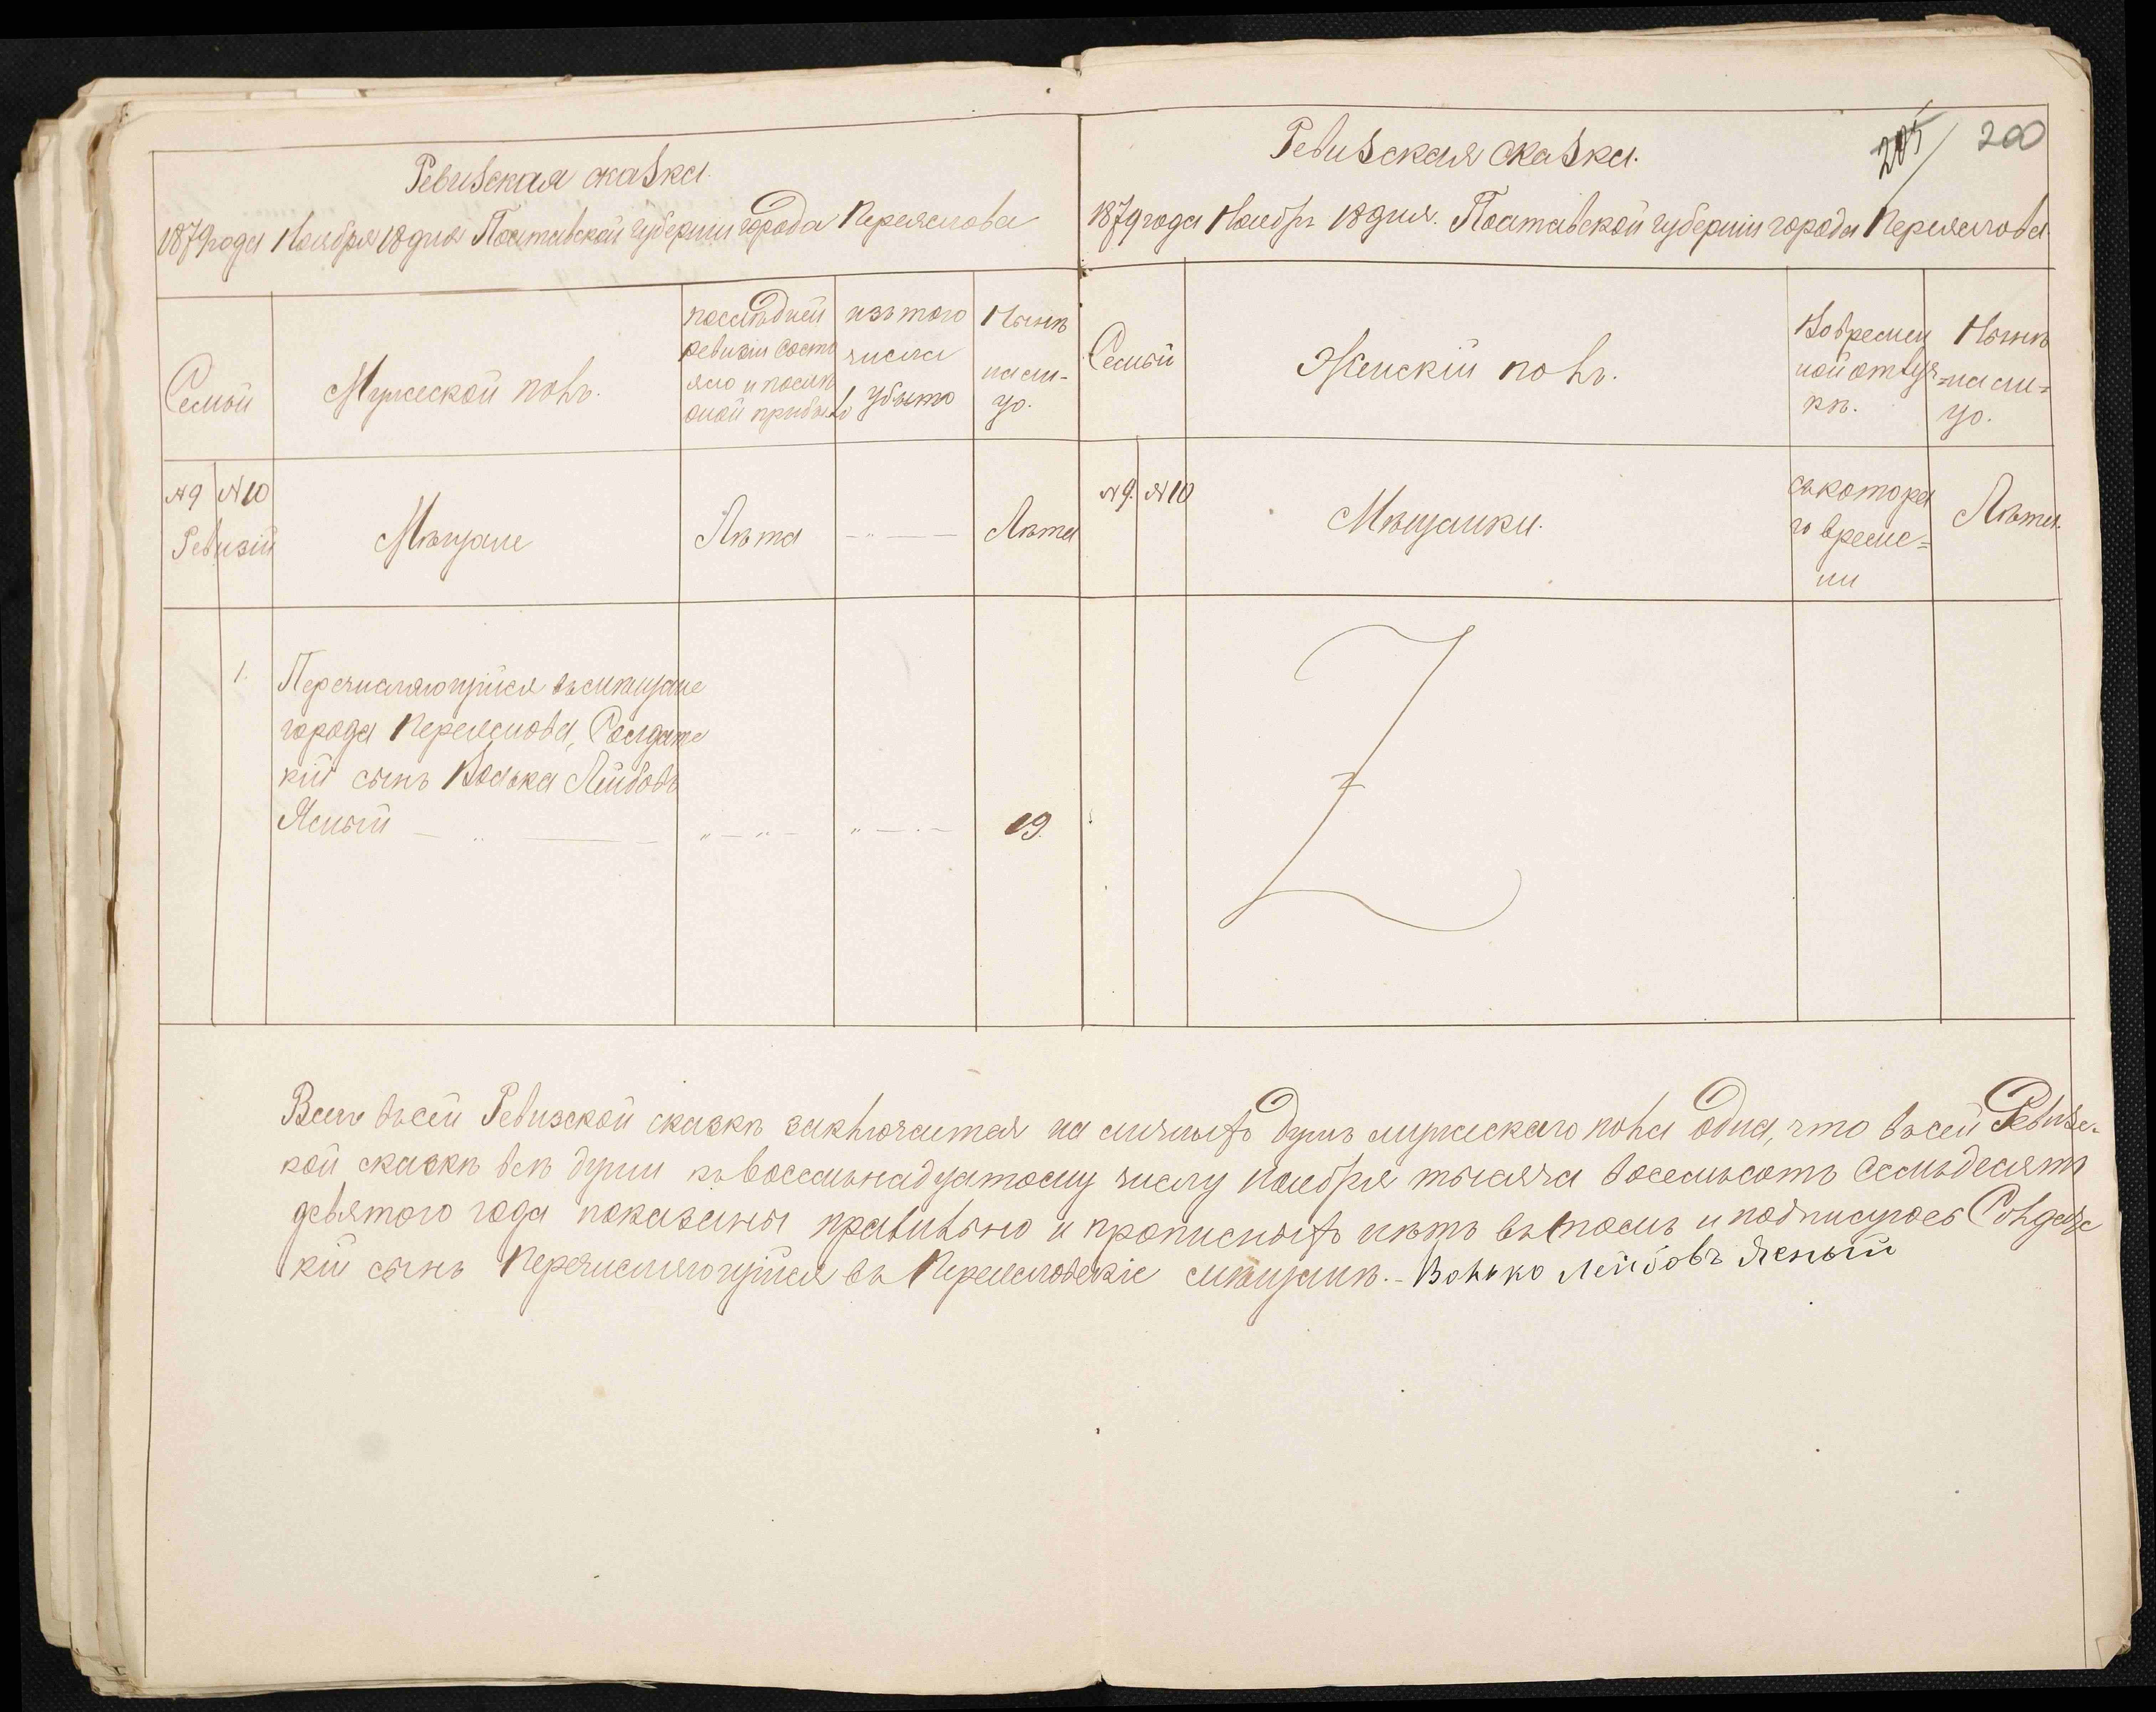 Ревизская сказка
1879 года Ноября 18 дня Полтавской губернии города Переяслова
Семьи
Мужеской полъ.
последней
ревизіи состо
яло и после
оной прибыло
изъ того
числа
убыло
Нынѣ
на ли-
цо.
№9 №10
Ревизій
Мѣщане
Лѣта
Лѣта
1.
Перечисляющійся въ мѣщане
города Переяслова, Солдатс
кій сынъ Волька Лейбовъ
Ясный
19.
205 200
Ревизская сказка.
1879 года Ноября 18 дня. Полтавской губерніи города Переяслова.
Семьи
Женскій полъ.
Во времен
ной отлуч-
кѣ.
Нынѣ
на ли=
цо.
№9. №10
Мѣщанки.
съ котора
го време=
ни
Лѣта.
Всего въ сей Ревизской сказкѣ заключается на личныхъ душъ мужескаго пола одна, что въ сей Ревизс-
кой сказкѣ всѣ души къ восемьнадцатому числу ноября тысяча восемьсотъ семьдесятъ
девятого года показаны правильно и прописныхъ нѣтъ въ томъ и подписуюсъ Солдатс
кій сынъ Перечисляющійся въ Переясловскіе мѣщанѣ. - Волько Лейбовъ Ясный